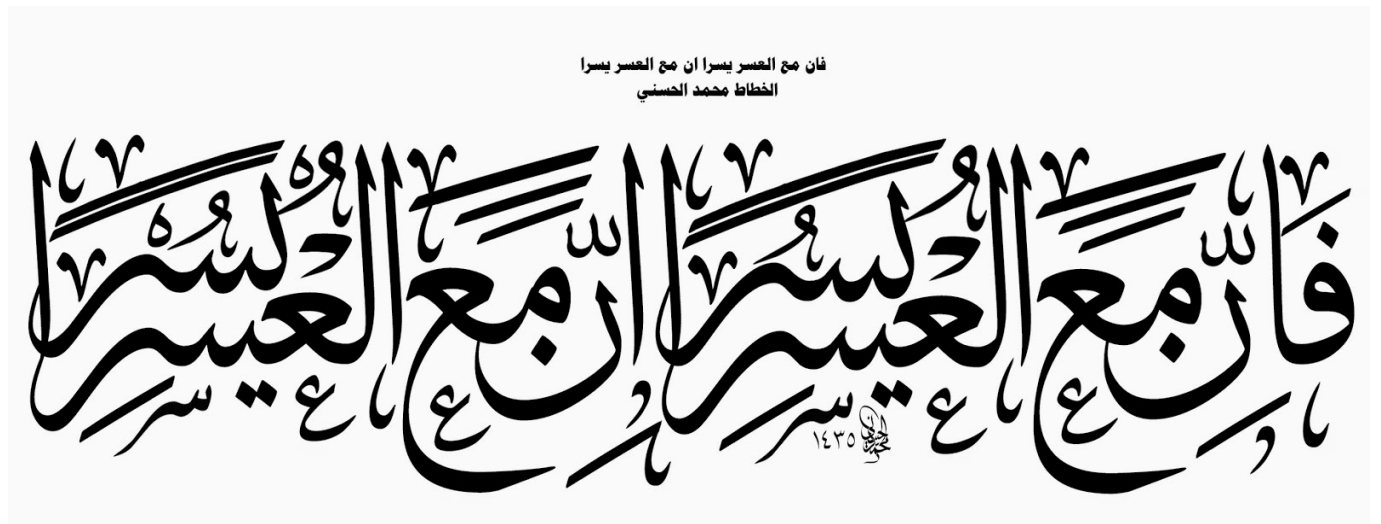 فان مع العسر يسرا ان مع العسر يسرا
الخطاط محمد الحسني
فَاِنَّ مَعَ الْعُسْرِ يُسْرًا اِنَّ مَعَ الْعُسْرِ يُسْرًا
١٤٣٥